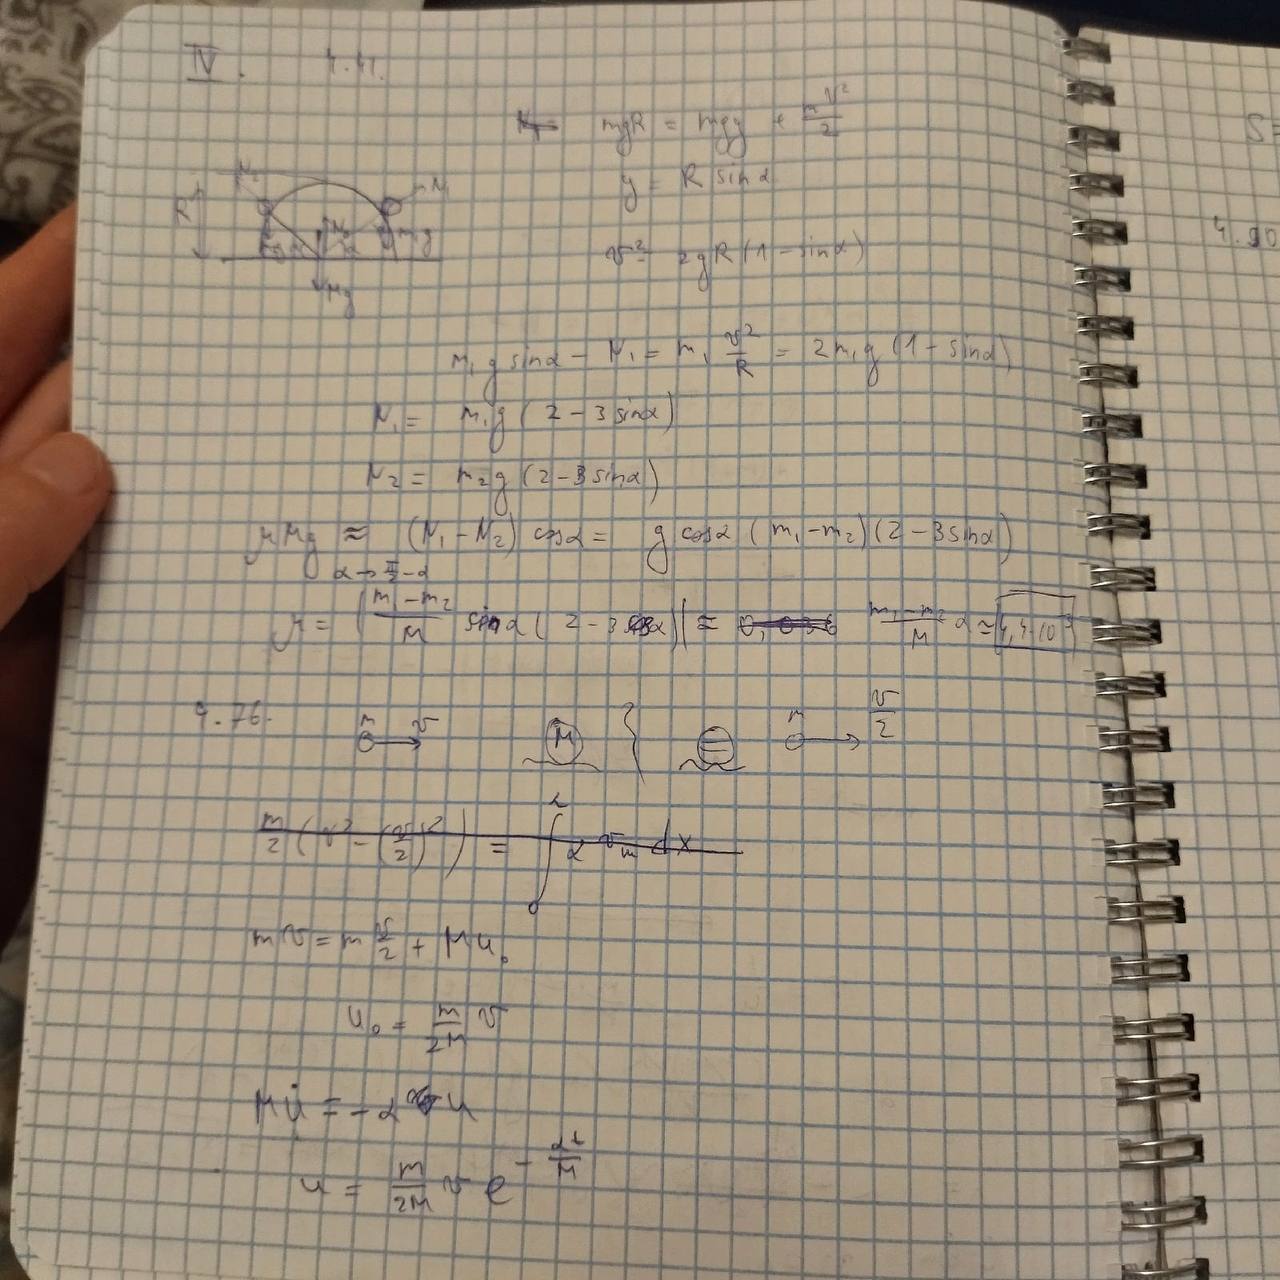 IV. 4.41.
mgR = mgy + mv²/2
y = R sin α
v² = 2gR(1 - sin α)
R
Mg
m₁g sin α - N₁ = m₁ v²/R = 2m₁g(1 - sin α)
N₁ = m₁g(2 - 3 sin α)
N₂ = m₂g(2 - 3 sin α)
μMg ≈ (N₁ - N₂) cos α = g cos α (m₁ - m₂)(2 - 3 sin α)
α → π/2 - α
μ = |(m₁ - m₂)/M sin α (2 - 3 cos α)| ≈ (m₁ - m₂)/M α ≈
4.76. m v M { m v/2
m/2 (v² - (v/2)²) = ∫₀ᴸ α vₘ dx
mv = m v/2 + Mu₀
u₀ = m/2M v
Mu̇ = -α u
u = m/2M v e^(-αt/M)
S=
4.90